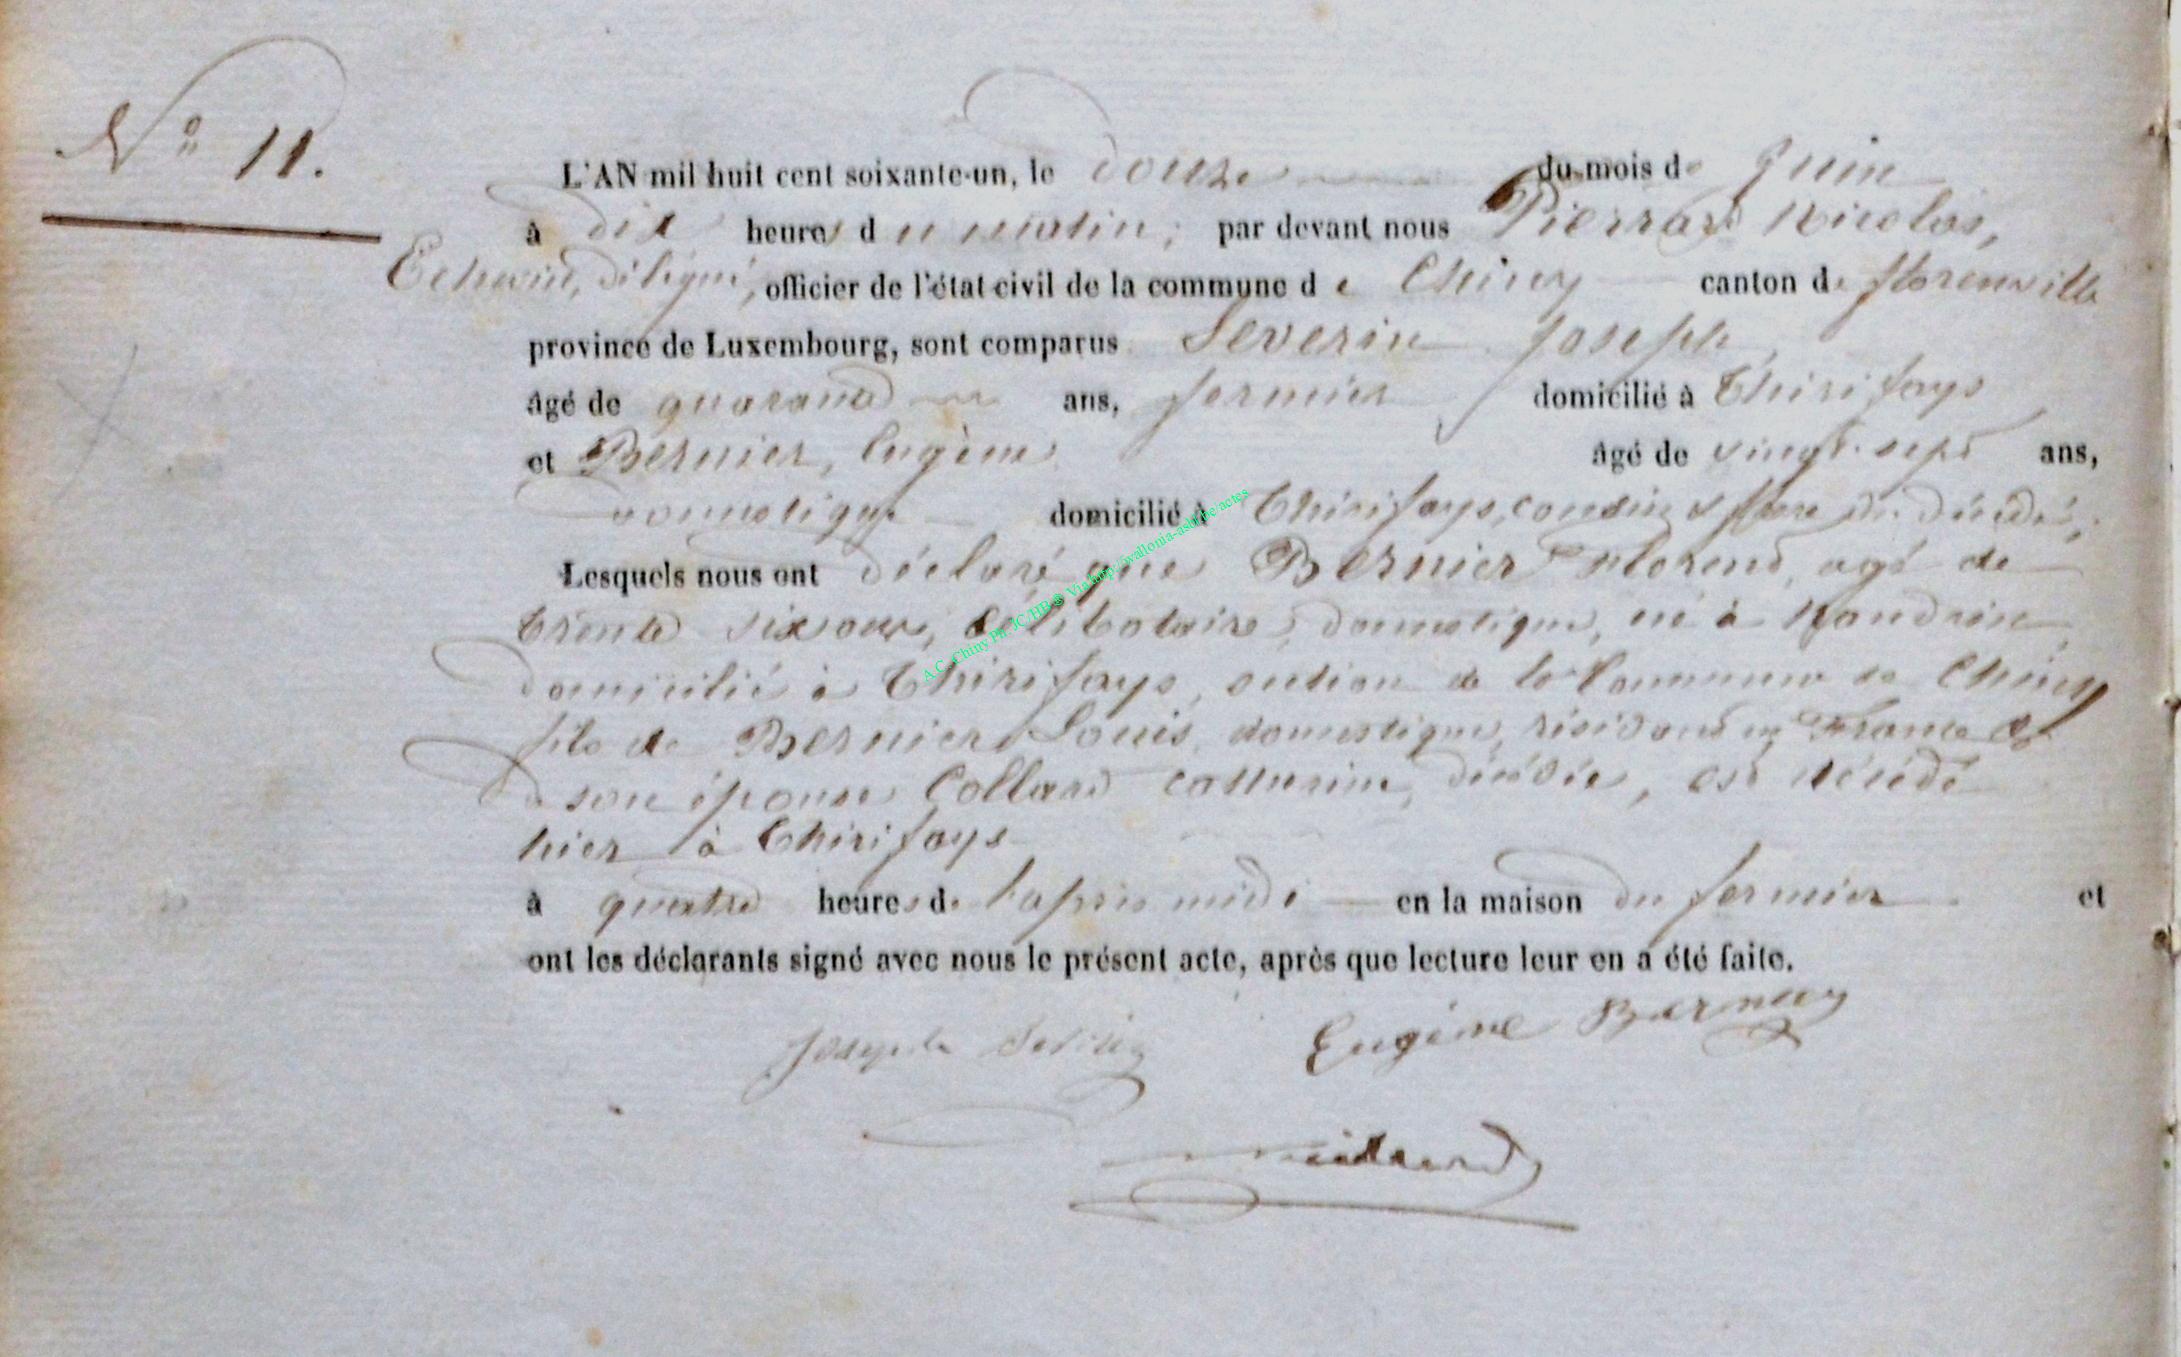 N° 11.
L'AN mil huit cent soixante-un, le douze du mois de Juin
à dix heures du matin, par devant nous Pierrard Nicolas,
Echevin, délégué, officier de l'état civil de la commune de Chiny canton de florenville
province de Luxembourg, sont comparus Severin Joseph,
âgé de quarante ans, fermier domicilié à Thirifays
et Bernier, Eugène âgé de vingt-sept ans,
domestique domicilié à Thirifays, cousin & frère du décédé,
Lesquels nous ont déclaré que Bernier florend, agé de
trente six ans, célibataire, domestique, né à
domicilié à Thirifays, section de la Commune de Chiny
fils de Bernier Louis, domestique, résidant en France &
de son épouse Collard catherine, décédée, est décédé
hier à Thirifays
à quatre heures de l'après midi en la maison du fermier et
ont les déclarants signé avec nous le présent acte, après que lecture leur en a été faite.
Joseph Severin Eugène Bernier
A.C. Chiny Ph. JC/HB ® Via http://wallonia-asbl.be/actes